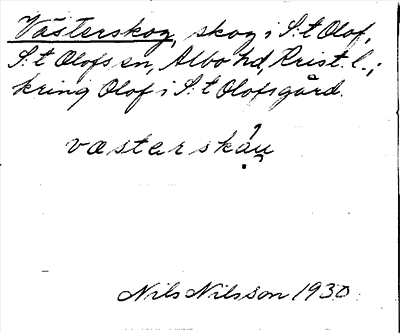 Västerskog, skog i S:t Olof,
S:t Olofs sn, Albo hd, Krist. l.;
kring Olof i S:t Olofsgård.
væstarskåu
Nils Nilsson 1930.